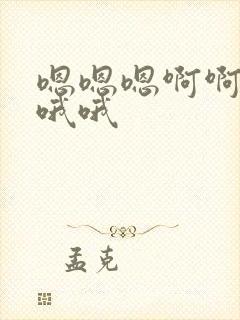 嗯嗯嗯啊啊
哦哦
孟克